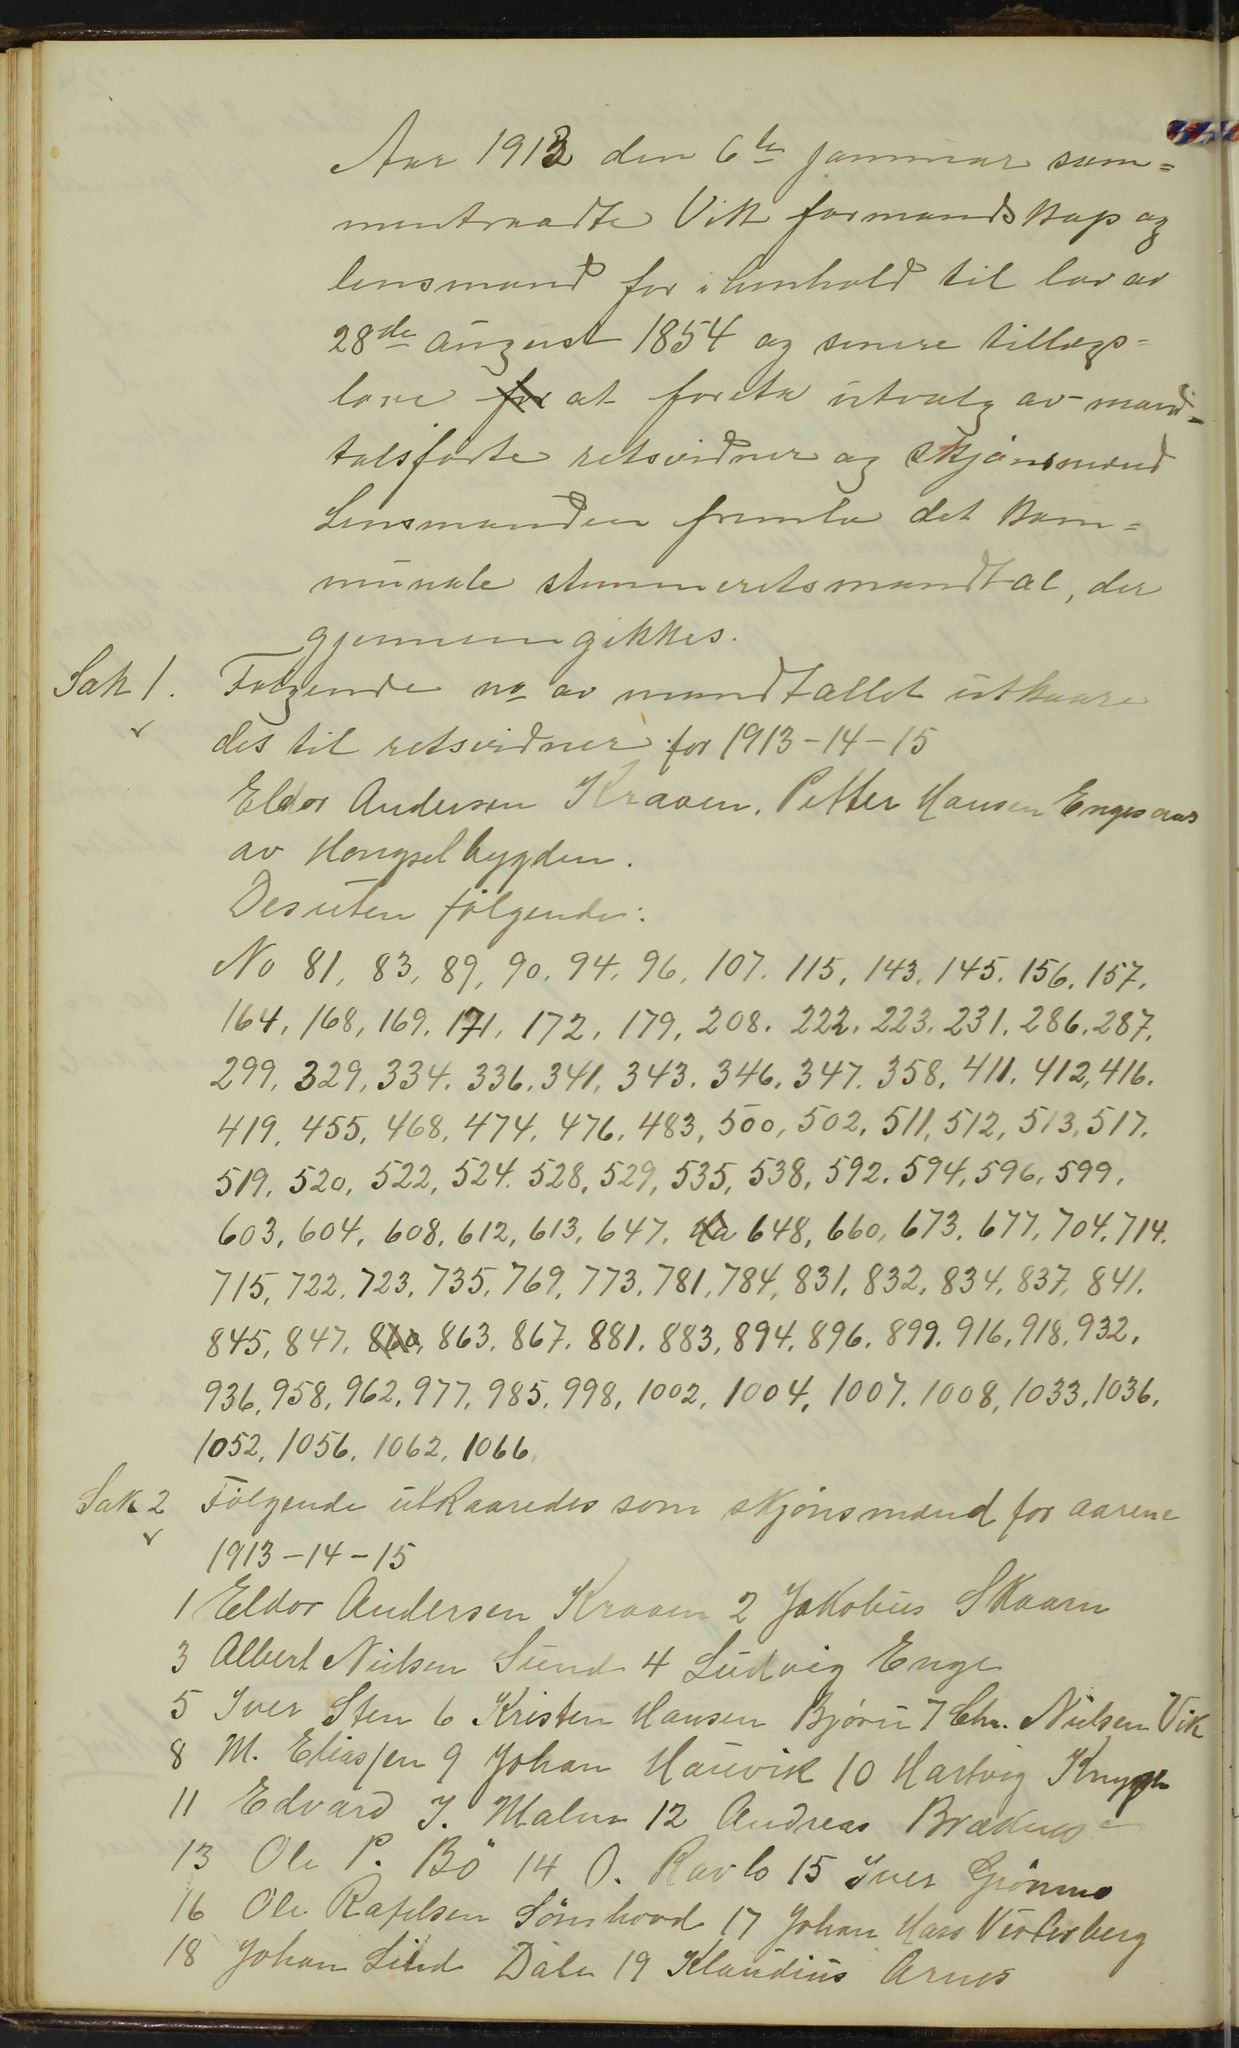 Aar 1913 den 6te januar sam=
mentraadte Vik formandskap og
lensmand for i henhold til lov av
28de august 1854 og senere tillægs=
love for at foreta utvalg av mand=
talsførte retsvidner og skjønsmænd
Lensmanden fremla det kom=
munale stemmeretsmandtal, der
gjennemgikkes.
Sak 1. Følgende no av mandtallet utkaare
des til retsvidner for 1913-14-15
Eldor Andersen Kraaen, Petter Hansen Engesaas
av Hongselbygden.
Desuten følgende:
No 81, 83, 89, 90, 94, 96, 107, 115, 143, 145, 156, 157,
164, 168, 169, 171, 172, 179, 208, 222, 223, 231, 286, 287,
299, 329, 334, 336, 341, 343, 346, 347, 358, 411, 412, 416.
419, 455, 468, 474, 476, 483, 500, 502, 511, 512, 513, 517.
519, 520, 522, 524, 528, 529, 535, 538, 592, 594, 596, 599,
603, 604, 608, 612, 613, 647, 648, 660, 673, 677, 704, 714.
715, 722, 723, 735, 769, 773, 781, 784, 831, 832, 834, 837, 841.
845, 847, 860, 863, 867, 881, 883, 894, 896, 899, 916, 918, 932,
936, 958, 962, 977, 985, 998, 1002, 1004, 1007, 1008, 1033, 1036,
1052, 1056, 1062, 1066,
Sak 2 Følgende utkaaredes som skjønsmænd for aarene
1913-14-15
1 Eldor Andersen Kraaen 2 Jakobus Skaarn
3 Albert Nielsen Sund 4 Ludvig Enge
5 Iver Sten 6 Kristen Hansen Bjørn 7 Chr. Nielsen Vik
8 M. Eliassen 9 Johan Hauvik 10 Hartvig
11 Edvard J. Malm 12 Andreas Bræknes
13 Ole P. Bö 14 O. Ravlo 15 Iver Grönmo
16 Ole Rafelsen Sömhovd 17 Johan Hans Vesterberg
18 Johan Lind Dale 19 Klaudius Arnes